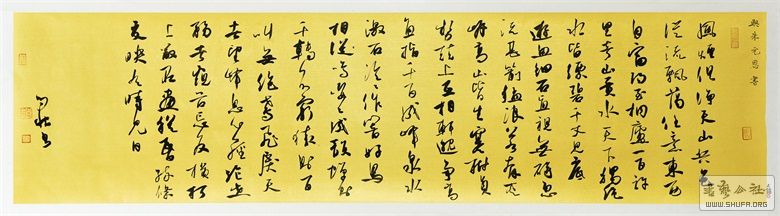 與朱元思書
風煙俱淨天山共色
從流飄蕩任意東西
自富陽至桐廬一百許
里奇山異水天下獨絕
水皆縹碧千丈見底
遊魚細石直視無礙急
湍甚箭猛浪若奔夾
岸高山皆生寒樹負
勢競上互相軒邈爭高
直指千百成峰泉水
激石泠泠作響好鳥
相鳴嚶嚶成韻蟬則
千轉不窮猿則百
叫無絕鳶飛戾天
者望峰息心經綸世
務者窺谷忘反橫柯
上蔽在晝猶昏疏條
交映有時見日
书艺公社
WWW.SHUFA.ORG